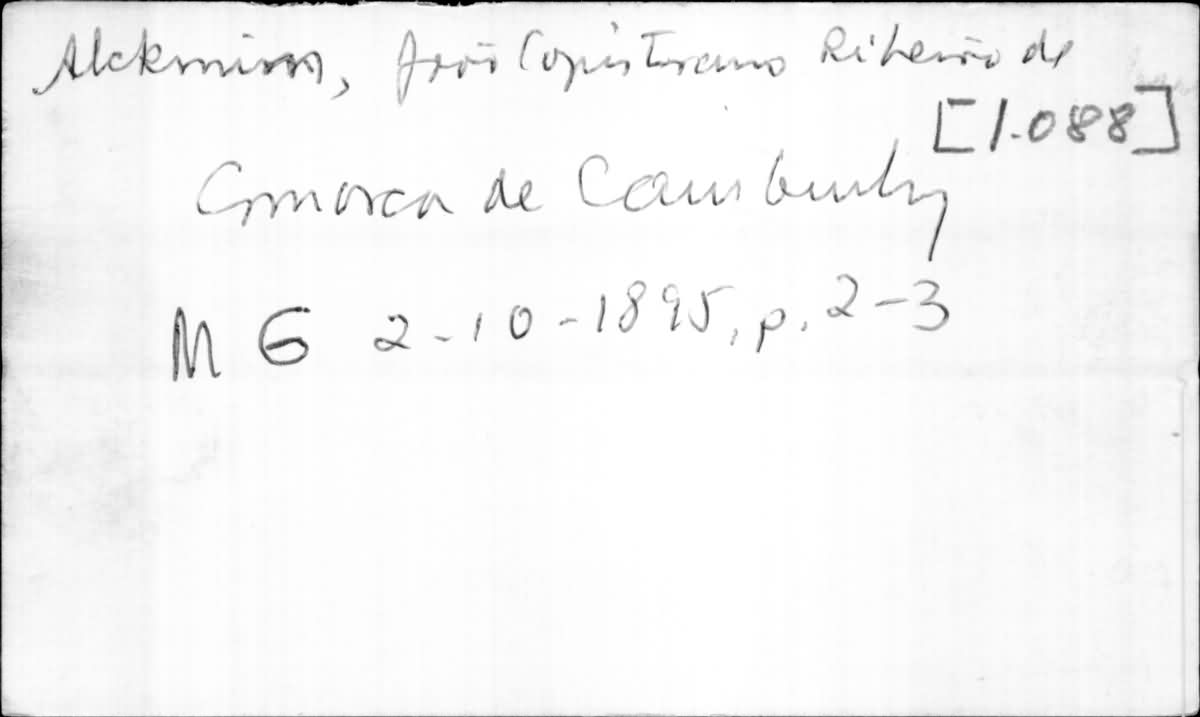 Alckmim, João Capistrano Ribeiro de
[1.088]
Comarca de Cambuhy
MG 2-10-1895, p. 2-3